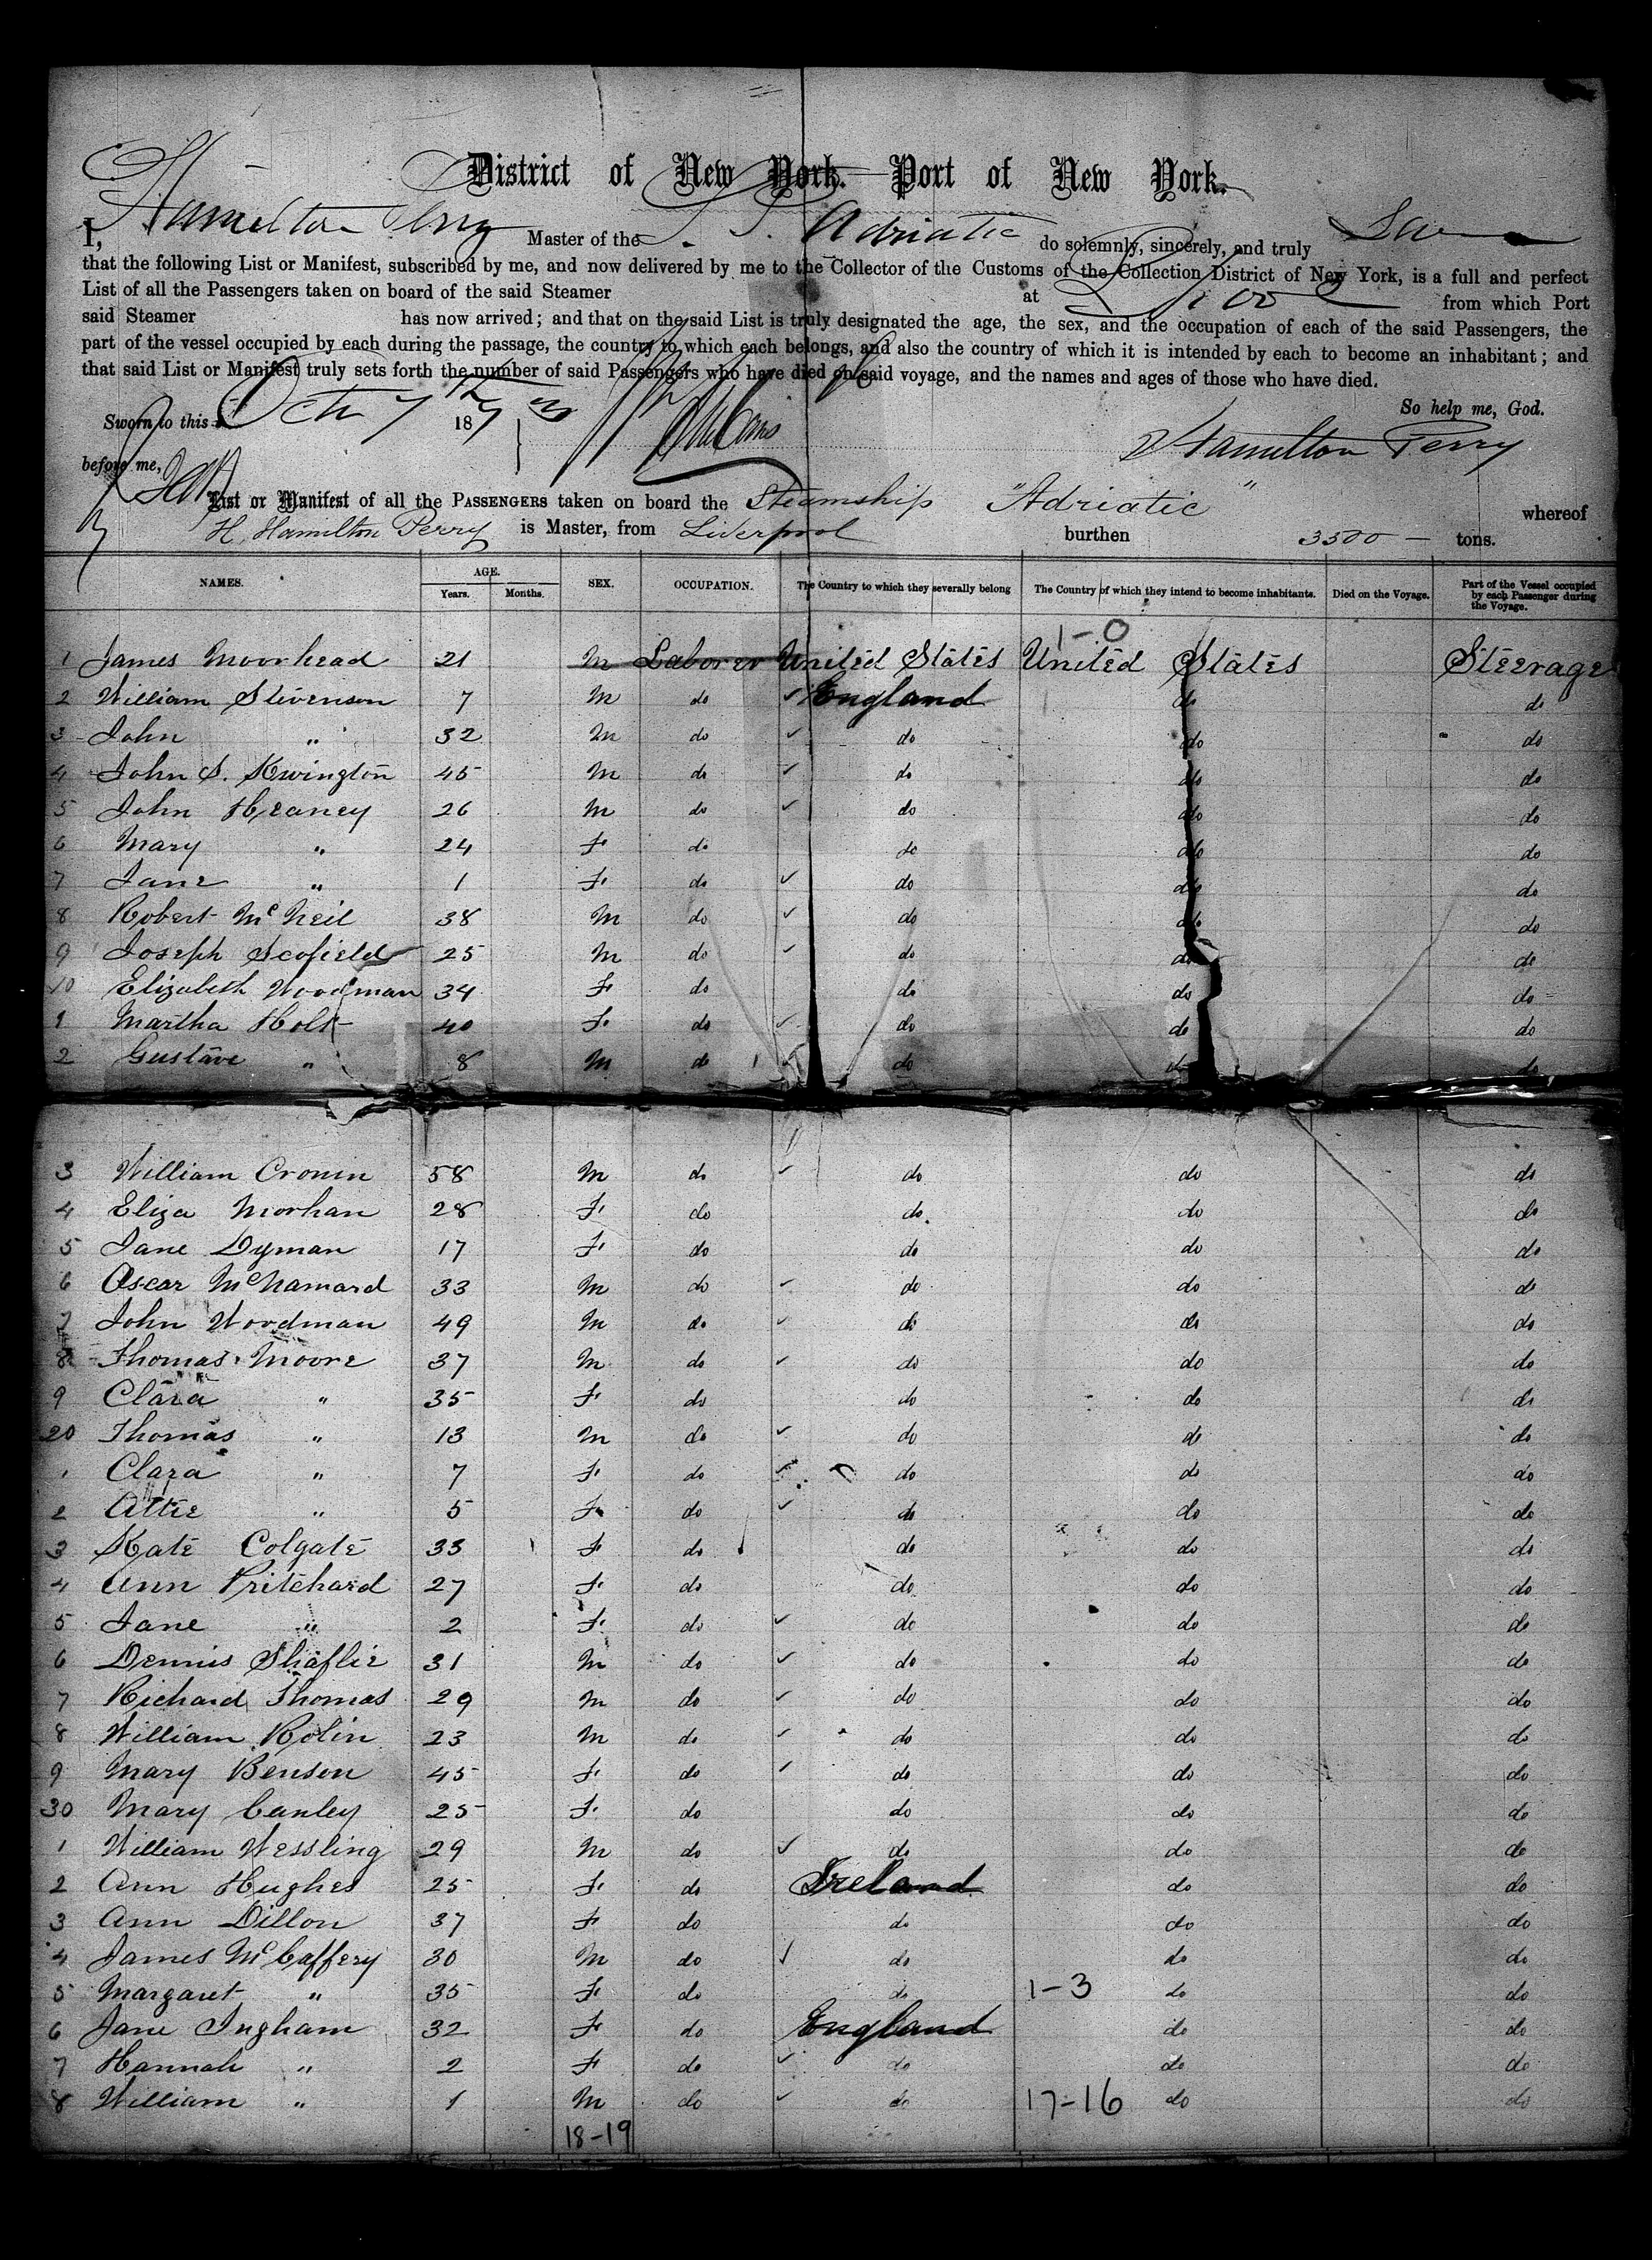 District of New York. Port of New York.
I, Hamilton Perry Master of the S. S. Adriatic do solemnly, sincerely, and truly
that the following List or Manifest, subscribed by me, and now delivered by me to the Collector of the Customs of the Collection District of New York, is a full and perfect
List of all the Passengers taken on board of the said Steamer at L'pool from which Port
said Steamer has now arrived; and that on the said List is truly designated the age, the sex, and the occupation of each of the said Passengers, the
part of the vessel occupied by each during the passage, the country to which each belongs, and also the country of which it is intended by each to become an inhabitant; and
that said List or Manifest truly sets forth the number of said Passengers who have died on said voyage, and the names and ages of those who have died.
So help me, God.
Sworn to this Oct 7th 187
Hamilton Perry
before me,
List or Manifest of all the PASSENGERS taken on board the Steamship "Adriatic" whereof
H. Hamilton Perry is Master, from Liverpool burthen 3500 — tons.
NAMES. AGE. Years. Months. SEX. OCCUPATION. The Country to which they severally belong The Country of which they intend to become inhabitants. Died on the Voyage. Part of the Vessel occupied by each Passenger during the Voyage.
1-0
1 James Moorhead 21 M Laborer United States United States Steerage
2 William Stivenson 7 M do England do do
3 John " 32 M do do do do
4 John S. Kwington 45 M do do do do
5 John Heaney 26 M do do do do
6 Mary " 24 F. do do do do
7 Jane " 1 F. do do do do
8 Robert McNeil 38 M do do do do
9 Joseph Scofield 25 M do do do do
10 Elizabeth Woodman 34 F do do do do
1 Martha Holt 40 F. do do do do
2 Gustave " 8 M do do do do
3 William Cronin 58 M do do do do
4 Eliza Morhan 28 F. do do do do
5 Jane Dyman 17 F. do do do do
6 Oscar McNamard 33 M do do do do
7 John Woodman 49 M do do do do
8 Thomas Moore 37 M do do do do
9 Clara " 35 F. do do do do
20 Thomas " 13 M do do do do
1 Clara " 7 F. do do do do
2 Attie " 5 F. do do do do
3 Kate Colgate 33 F do do do do
4 Ann Pritchard 27 F. do do do do
5 Jane " 2 F. do do do do
6 Dennis Shaflie 31 M do do do do
7 Richard Thomas 29 M do do do do
8 William Rolin 23 M do do do do
9 Mary Benson 45 F. do do do do
30 Mary Canley 25 F. do do do do
1 William Wessling 29 M do do do do
2 Ann Hughes 25 F. do Ireland do do
3 Ann Dillon 37 F do do do do
4 James McCaffery 30 M do do do do
5 Margaret " 35 F. do do 1-3 do do
6 Jane Ingham 32 F do England do do
7 Hannah " 2 F do do do do
8 William " 1 M do do 17-16 do do
18-19